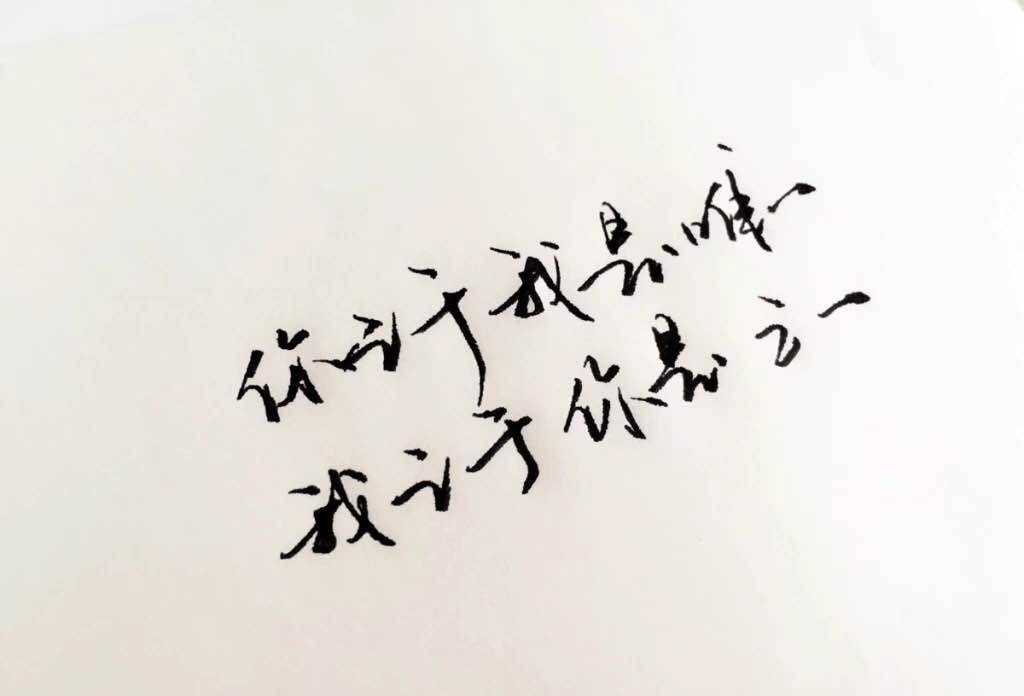 你之于我是唯一
我之于你是之一